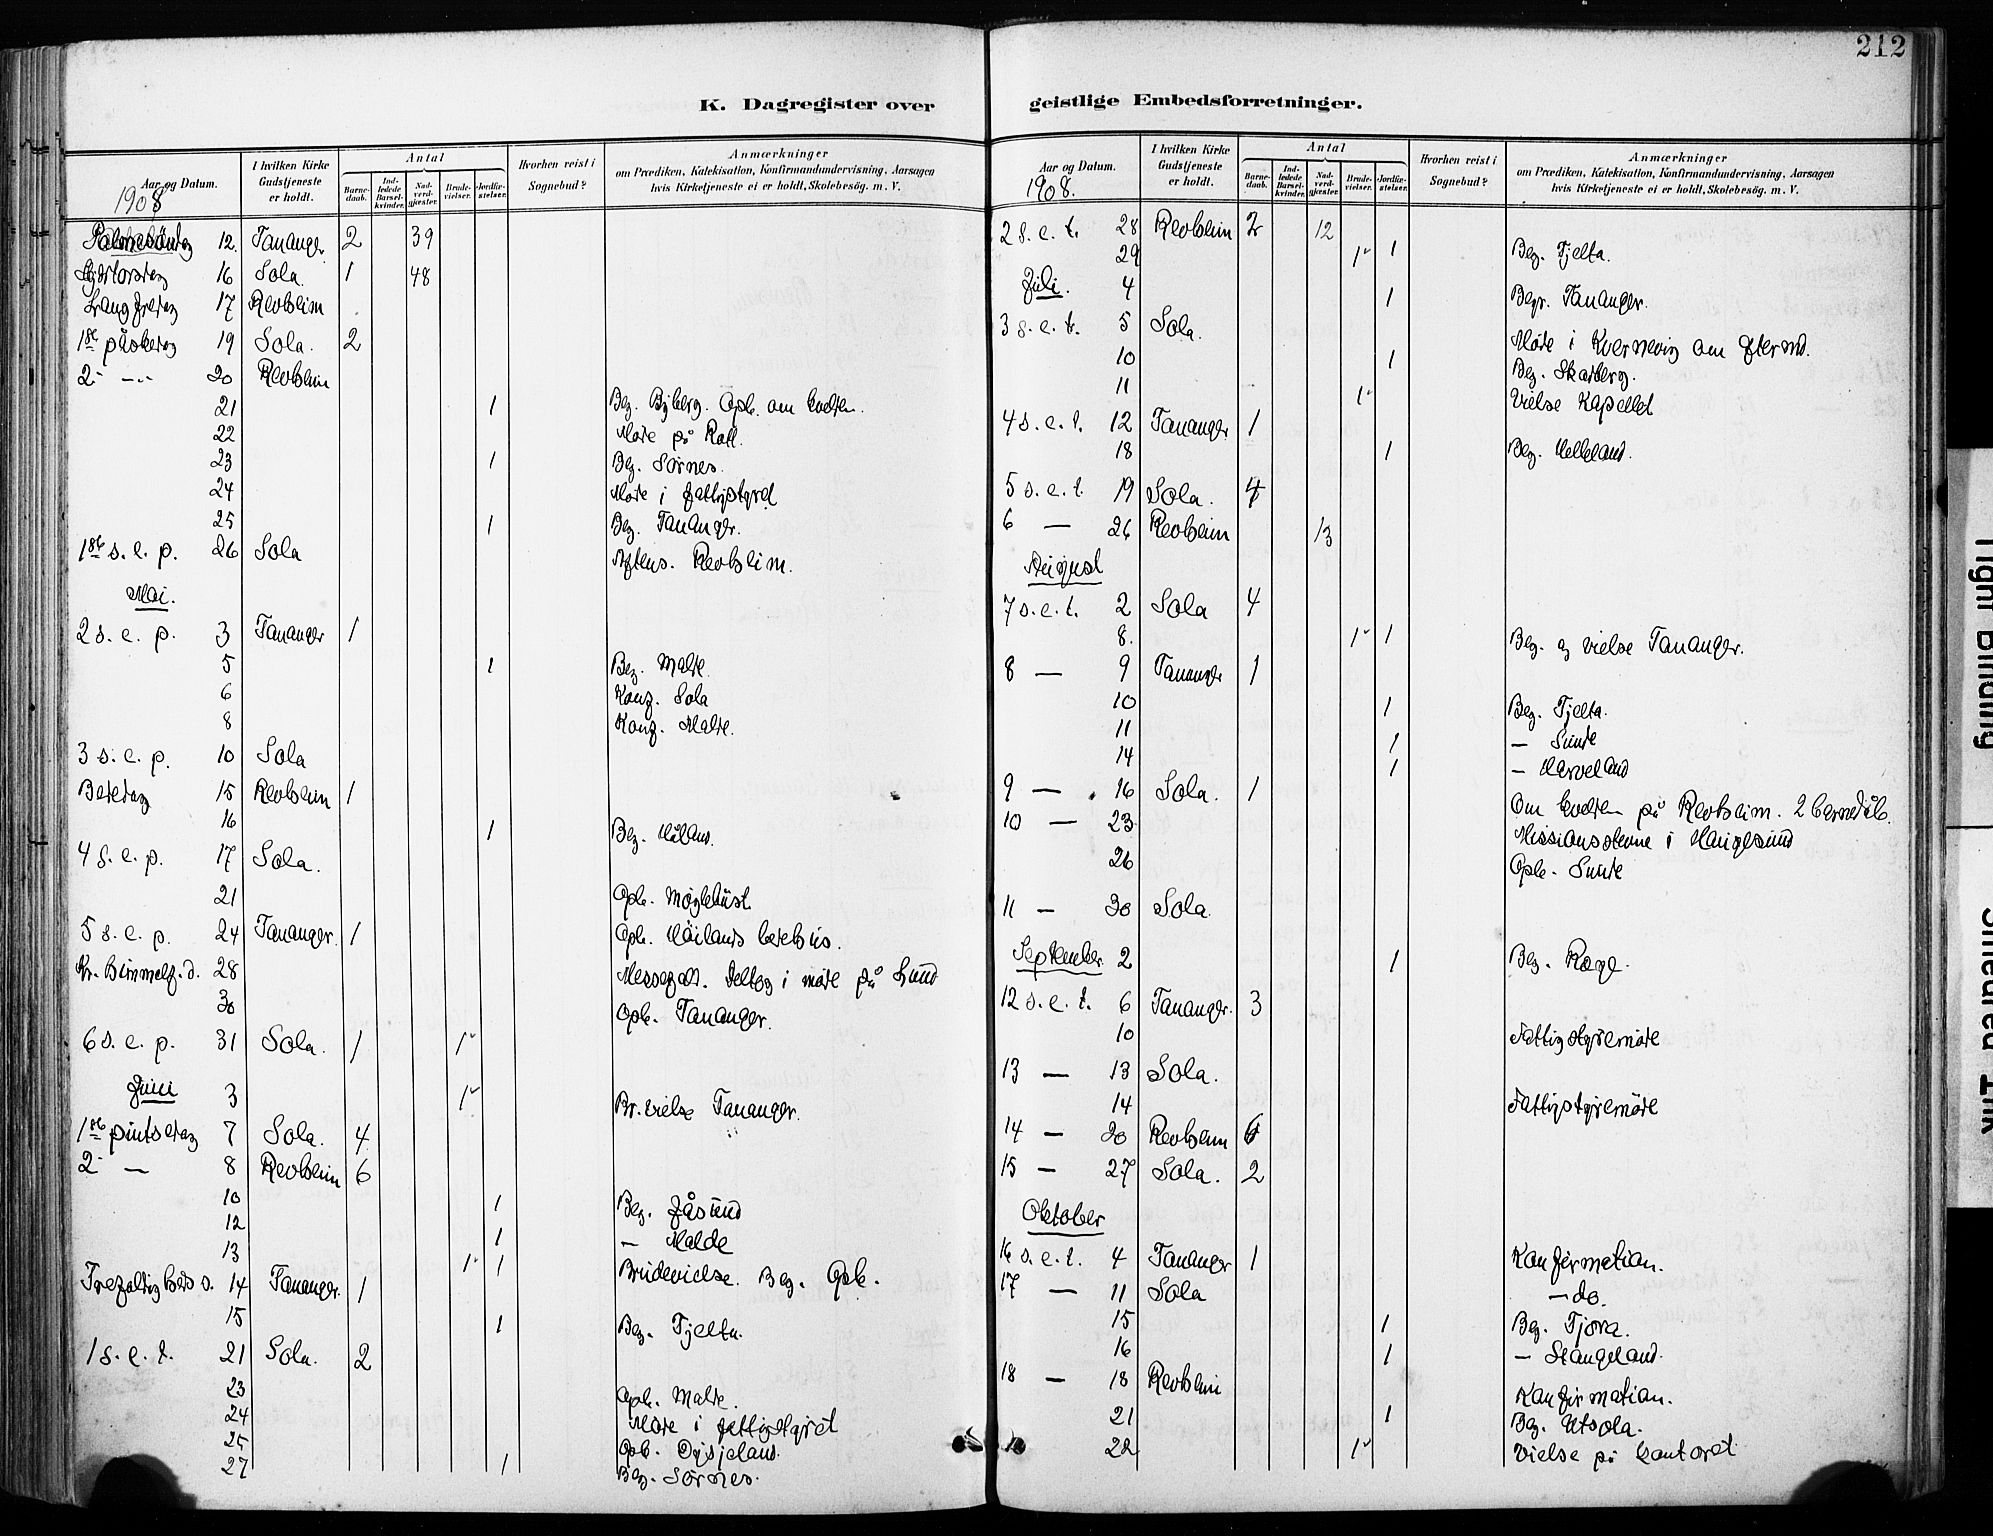 212
K. Dagregister over geistlige Embedsforretninger.
Aar og Datum. 1908
I hvilken Kirke Gudstjeneste er holdt.
Antal
Barnedaab.
Indledede Barselkvinder.
Nadverdgjester.
Brudevielser.
Jordfæstelser.
Hvorhen reist i Sognebud?
Anmærkninger
om Prædiken, Katekisation, Konfirmandundervisning, Aarsagen
hvis Kirketjeneste ei er holdt, Skolebesøg. m. V.
Palmesöndag 12. Tananger 2 39
Skjærtorsdag 16 Sola. 1 48
Langfredag 17 Revheim
1ste påskedag 19 Sola. 2
2- -"- 20 Revheim
21 1 Beg. Byberg. Opb. om kvelden.
22 Møde på Rott.
23 1 Beg. Sørnes.
24 Møde i fattigstyret
25 1 Beg. Tananger.
1ste s. e. p. 26 Sola Aftens. Revheim.
Mai.
2 s. e. p. 3 Tananger 1
5 1 Beg. Malde.
6 Konf. Sola
8 Konf. Malde.
3 s. e. p. 10 Sola
Bededag 15 Revheim 1
16 1 Beg. Håland.
4 s. e. p. 17 Sola.
21 Opb. Møglebust
5 s. e. p. 24 Tananger. 1 Opb. Hålands bedehus.
Kr. himmelf. d. 28 Messefald. Deltog i møde på Lund
30 Opb. Tananger.
6 s. e. p. 31 Sola. 1 1
Juni 3 1 Br. vielse Tananger.
1ste pintsedag 7 Sola. 4
2- — 8 Revheim 6
10 1 Beg. Jåsund
12 1 — Malde
13 1 1 Brudevielse. Beg. Opb.
Trefoldigheds s. 14 Tananger. 1
15 1 Beg. Fjelta.
1 s. e. t. 21 Sola. 2
23 Opb. Malde.
24 Møde i fattigstyret
25 Opb. Dysjeland.
27 1 Beg. Sørnes.
Aar og Datum. 1908.
I hvilken Kirke Gudstjeneste er holdt.
Antal
Barnedaab.
Indledede Barselkvinder.
Nadverdgjester.
Brudevielser.
Jordfæstelser.
Hvorhen reist i Sognebud?
Anmærkninger
om Prædiken, Katekisation, Konfirmandundervisning, Aarsagen
hvis Kirketjeneste ei er holdt, Skolebesøg. m. V.
2 s. e. t. 28 Revheim 2 12
29 1 1 Beg. Fjelta.
Juli. 4 1 Begr. Tananger.
3 s. e. t. 5 Sola. Møde i Kvernevig om eftermd.
10 1 Beg. Skadberg.
11 1 Vielse Kapellet
4 s. e. t. 12 Tananger 1
18 1 Beg. Helleland.
5 s. e. t. 19 Sola. 4
6 — 26 Revheim 13
August
7 s. e. t. 2 Sola 4
8. 1 1 Beg. og vielse Tananger.
8 — 9 Tananger 1
10 1 Beg. Fjelta.
11 1 — Sunde
14 1 — Harveland
9 — 16 Sola. 1 Om kvelden på Revheim. 2 barnedåb.
10 — 23 Missionsstevne i Haugesund
26 Opb. Sunde
11 — 30 Sola.
September 2 1 Beg. Rege.
12 s. e. t. 6 Tananger. 3
10 Fattigstyremøde
13 — 13 Sola.
14 Fattigstyremøde
14 — 20 Revheim 6
15 — 27 Sola. 2
Oktober
16 s. e. t. 4 Tananger 1 Konfirmation.
17 — 11 Sola — do.
15 1 Beg. Tjora.
16 1 — Stangeland.
18 — 18 Revheim Konfirmation.
21 1 Beg. Utsola.
22 1 Vielse på kontoret